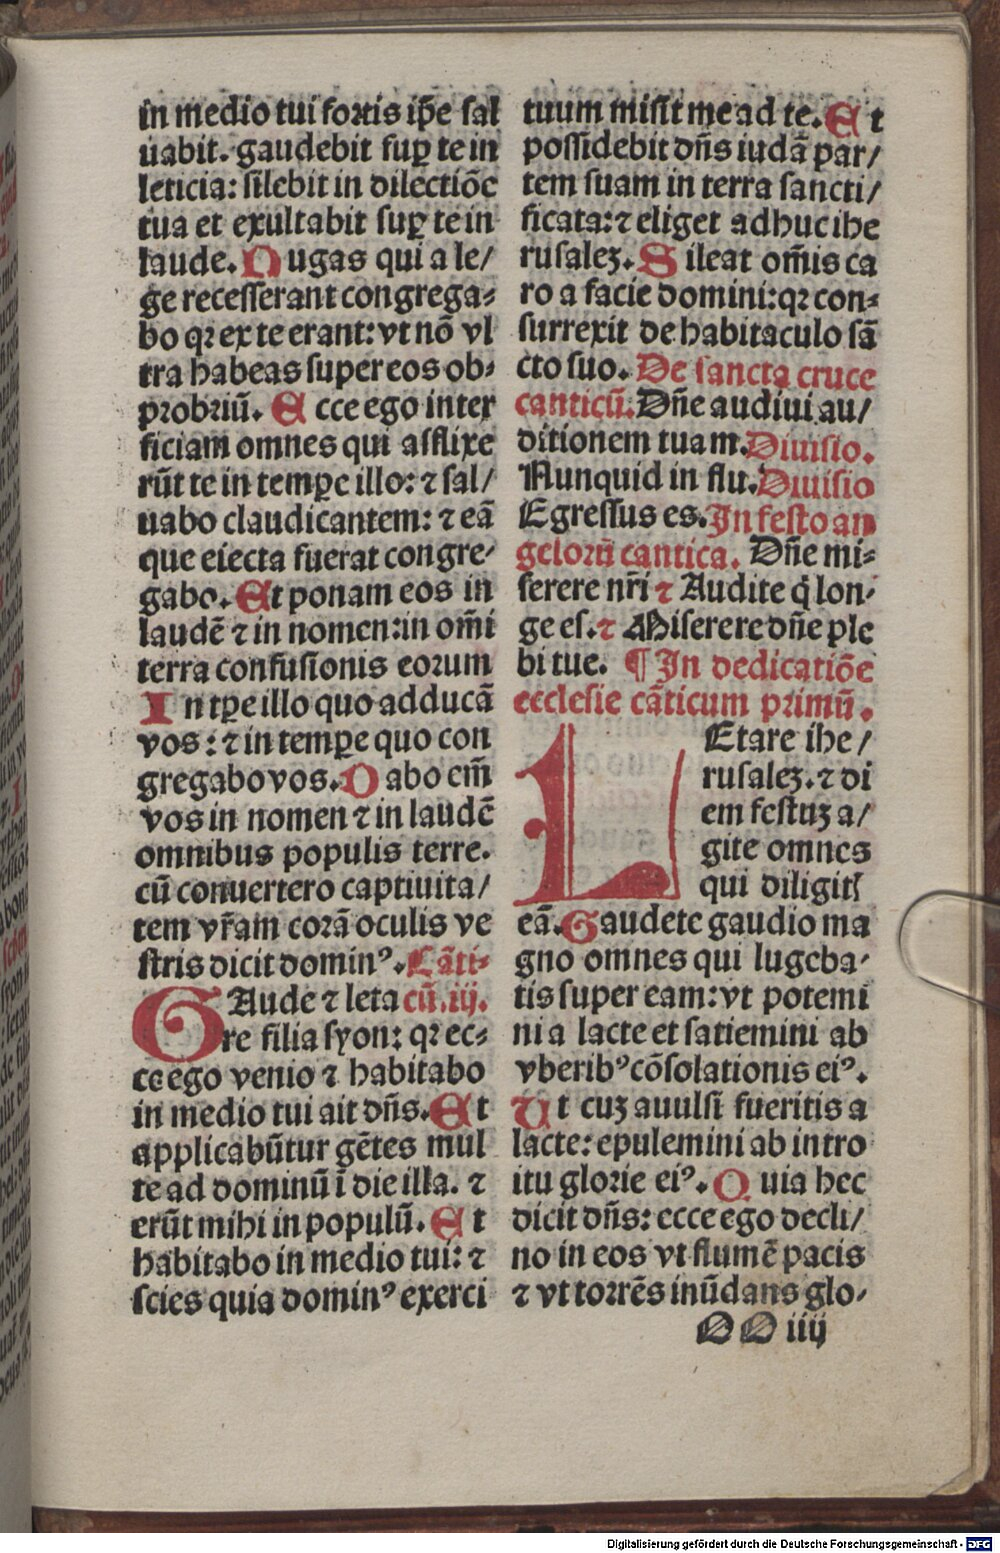 in medio tui fortis ip̄e sal
uabit. gaudebit sup̱ te in
leticia: silebit in dilectiōe
tua et exultabit sup̱ te in
laude. Nugas qui a le/
ge recesserant congrega-
bo qꝛ ex te erant: vt nō vl
tra habeas super eos ob-
probriū. Ecce ego inter
ficiam omnes qui afflixe
rūt te in temꝑe illo: ⁊ sal/
uabo claudicantem: ⁊ eā
que eiecta fuerat congre/
gabo. Et ponam eos in
laudē ⁊ in nomen: in om̄i
terra confusionis eorum
In tꝑe illo quo adducā
vos: ⁊ in temꝑe quo con
gregabo vos. Dabo em̄
vos in nomen ⁊ in laudē
omnibus populis terre.
cū conuertero captiuita/
tem vr̄am corā oculis ve
stris dicit dominꝰ. Cāti-
GAude ⁊ leta cū.iij.
re filia syon: qꝛ ec-
ce ego venio ⁊ habitabo
in medio tui ait dn̄s. Et
applicabūtur gētes mul
te ad dominū ī die illa. ⁊
erūt mihi in populū. Et
habitabo in medio tui: ⁊
scies quia dominꝰ exerci
tuum misit me ad te. Et
possidebit dn̄s iudā par/
tem suam in terra sancti/
ficata: ⁊ eliget adhuc ihe
rusaleꝫ. Sileat om̄is ca
ro a facie domini: qꝛ con-
surrexit de habitaculo sā
cto suo. De sancta cruce
canticū. Dn̄e audiui au/
ditionem tuam. Diuisio.
Nunquid in flu. Diuisio
Egressus es. In festo an
gelorū cantica. Dn̄e mi-
serere nr̄i ⁊ Audite q̄ lon/
ge es. ⁊ Miserere dn̄e ple
bi tue. ¶ In dedicatiōe
ecclesie cāticum primū.
LEtare ihe/
rusaleꝫ. ⁊ di
em festuꝫ a/
gite omnes
qui diligitꝭ
eā. Gaudete gaudio ma
gno omnes qui lugeba/
tis super eam: vt potemi
ni a lacte et satiemini ab
vberibꝰ cōsolationis eiꝰ.
Ut cuꝫ auulsi fueritis a
lacte: epulemini ab intro
itu glorie eiꝰ. Quia hec
dicit dn̄s: ecce ego decli/
no in eos vt flumē pacis
⁊ vt torrēs inūdans glo-
OO iiij
Digitalisierung gefördert durch die Deutsche Forschungsgemeinschaft - DFG